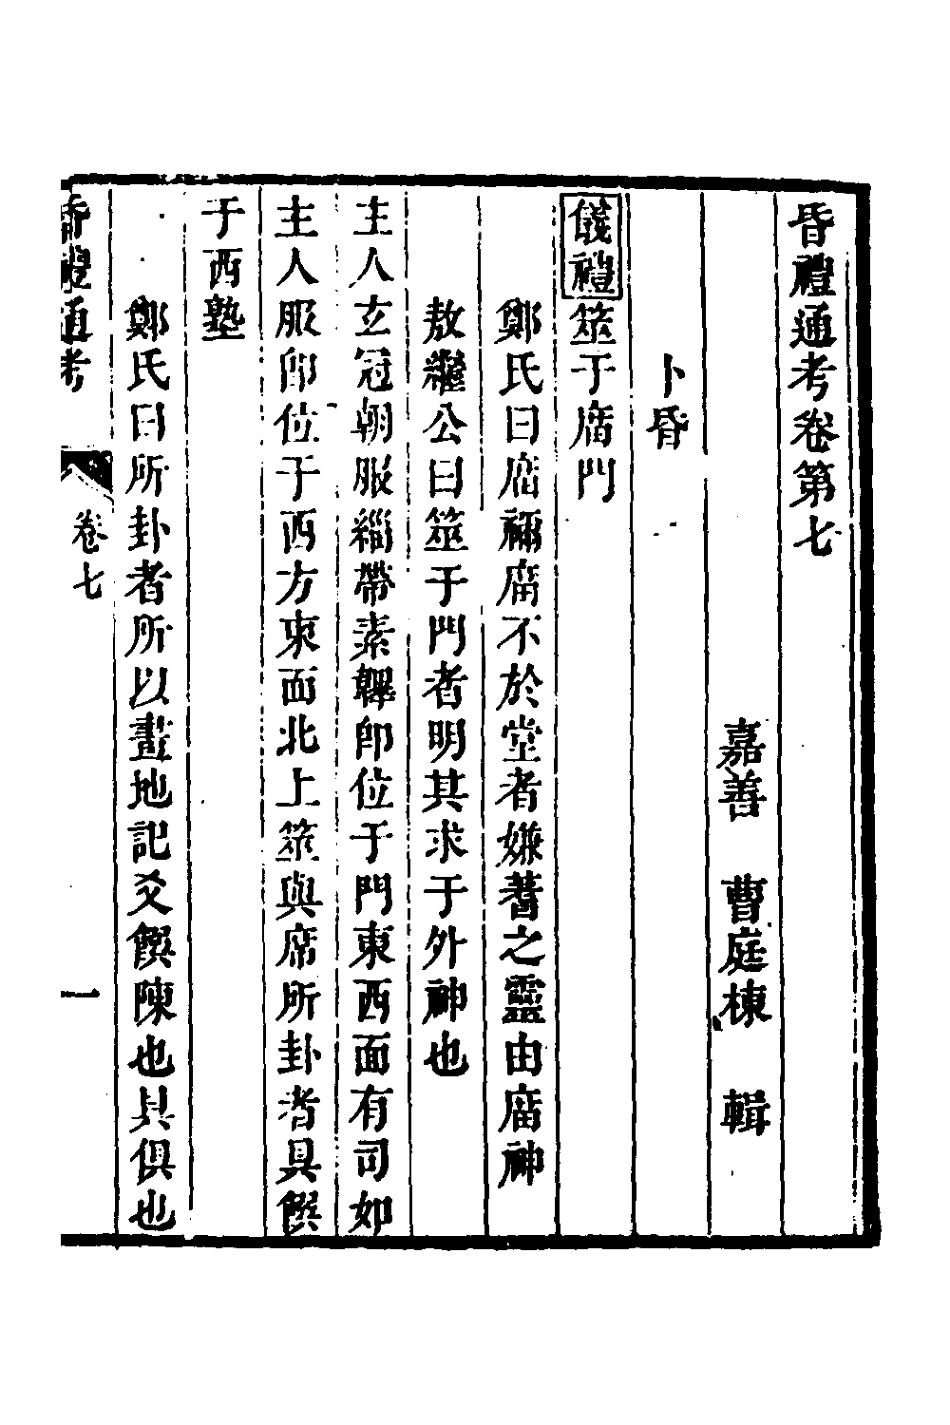 昏禮通考卷第七
嘉善　曹庭棟　輯
卜昏
儀禮筮于庿門
鄭氏曰庿禰庿不於堂者嫌蓍之靈由庿神
敖繼公曰筮于門者明其求于外神也
主人玄冠朝服緇帶素韠卽位于門東西面有司如
主人服卽位于西方東面北上筮與席所卦者具饌
于西塾
鄭氏曰所卦者所以畫地記爻饌陳也具俱也
昏禮通考　卷七　一